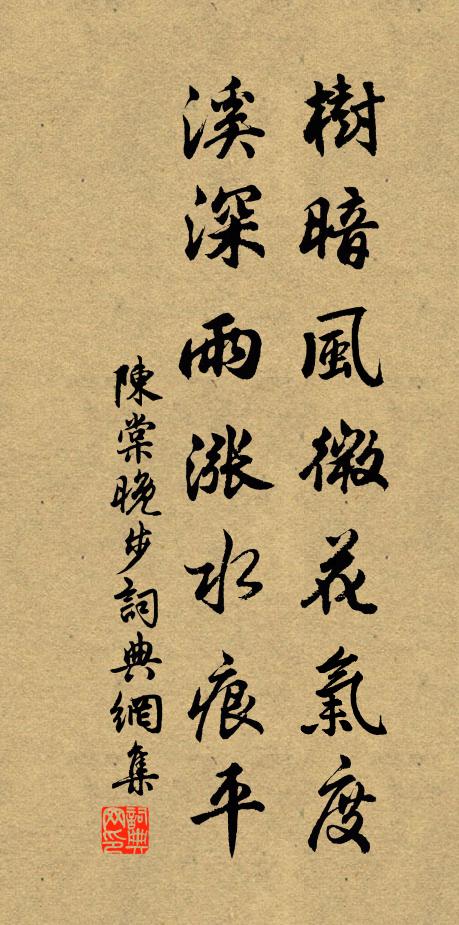 樹暗風微花氣度
溪深雨漲水痕平
陳棠晚步詞典網集
詞典網印